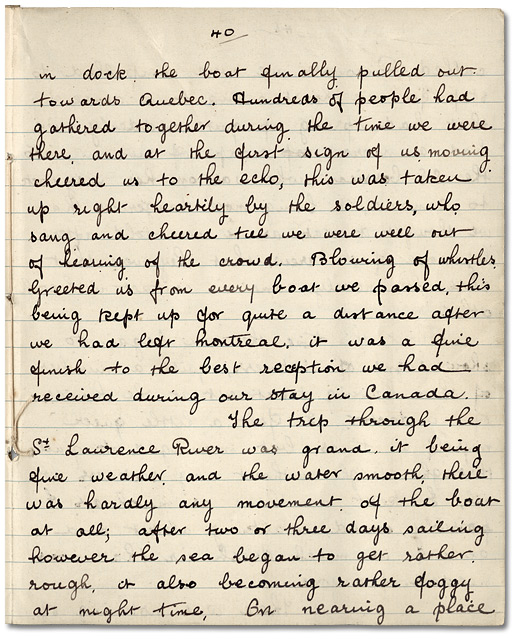 40
in dock the boat finally pulled out
towards Quebec. Hundreds of people had
gathered together during the time we were
there, and at the first sign of us moving
cheered us to the echo, this was taken
up right heartily by the soldiers, who
sang and cheered till we were well out
of hearing of the crowd. Blowing of whistles
Greeted us from every boat we passed, this
being kept up for quite a distance after
we had left Montreal. it was a fine
finish to the best reception we had
received during our stay in Canada.
The trip through the
St Lawrence River was grand. it being
fine weather and the water smooth, there
was hardly any movement of the boat
at all; after two or three days sailing
however the sea began to get rather
rough, it also becoming rather foggy
at night time, On nearing a place